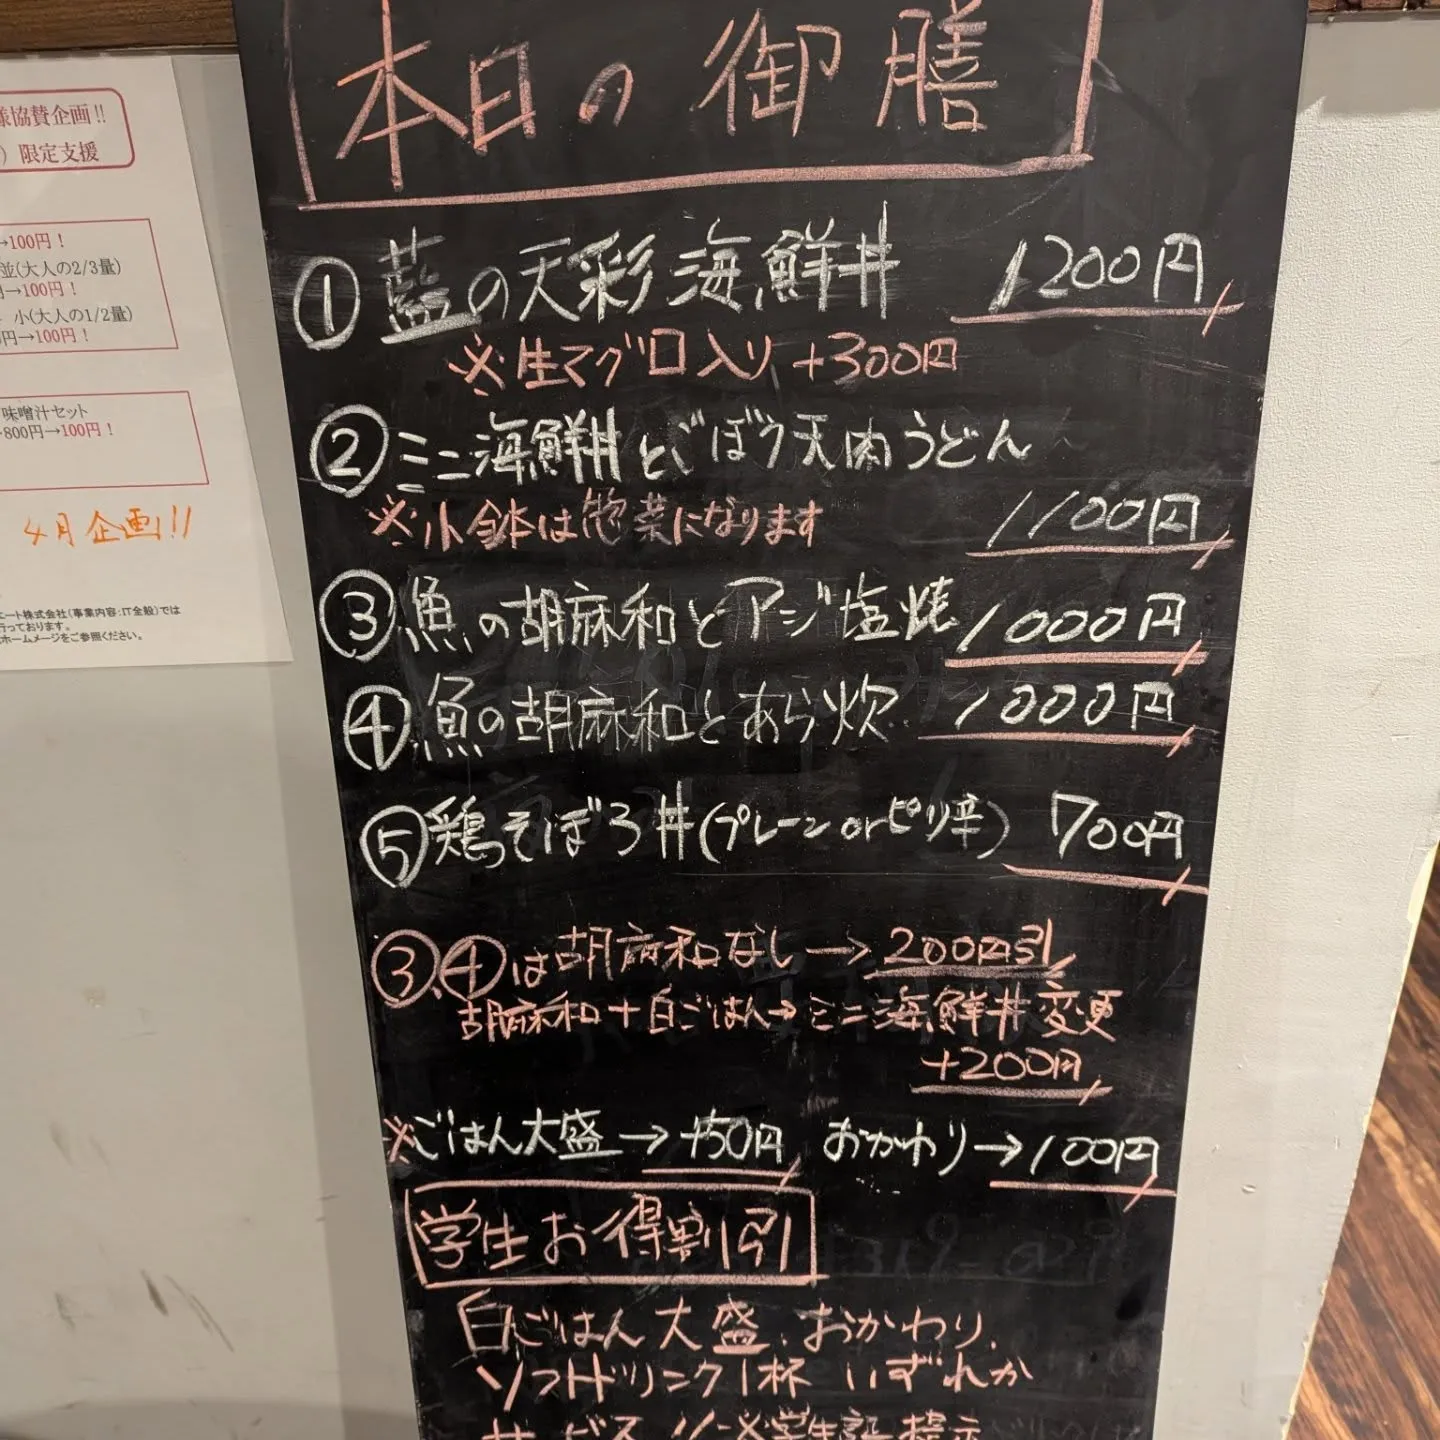 本日の御膳
①藍の天彩海鮮丼 1200円
※生マグロ入り +300円
②ミニ海鮮丼とごぼう天肉うどん
※小鉢は惣菜になります 1100円
③魚の胡麻和とアジ塩焼 1000円
④魚の胡麻和とあら炊 1000円
⑤鶏そぼろ丼(プレーンorピリ辛) 700円
③、④は胡麻和なし→200円引
胡麻和+白ごはん→ミニ海鮮丼変更
+200円
※ごはん大盛→+50円 おかわり→100円
学生お得割引
白ごはん大盛、おかわり、
ソフトドリンク1杯 いずれか
サービス ※学生証提示
様協賛企画!!
限定支援
→100円!
並(大人の2/3量)
→100円!
小(大人の1/2量)
円→100円!
味噌汁セット
800円→100円!
4月企画!!
エート株式会社(事業内容:IT全般)では
行っております。
ホームメージをご参照ください。